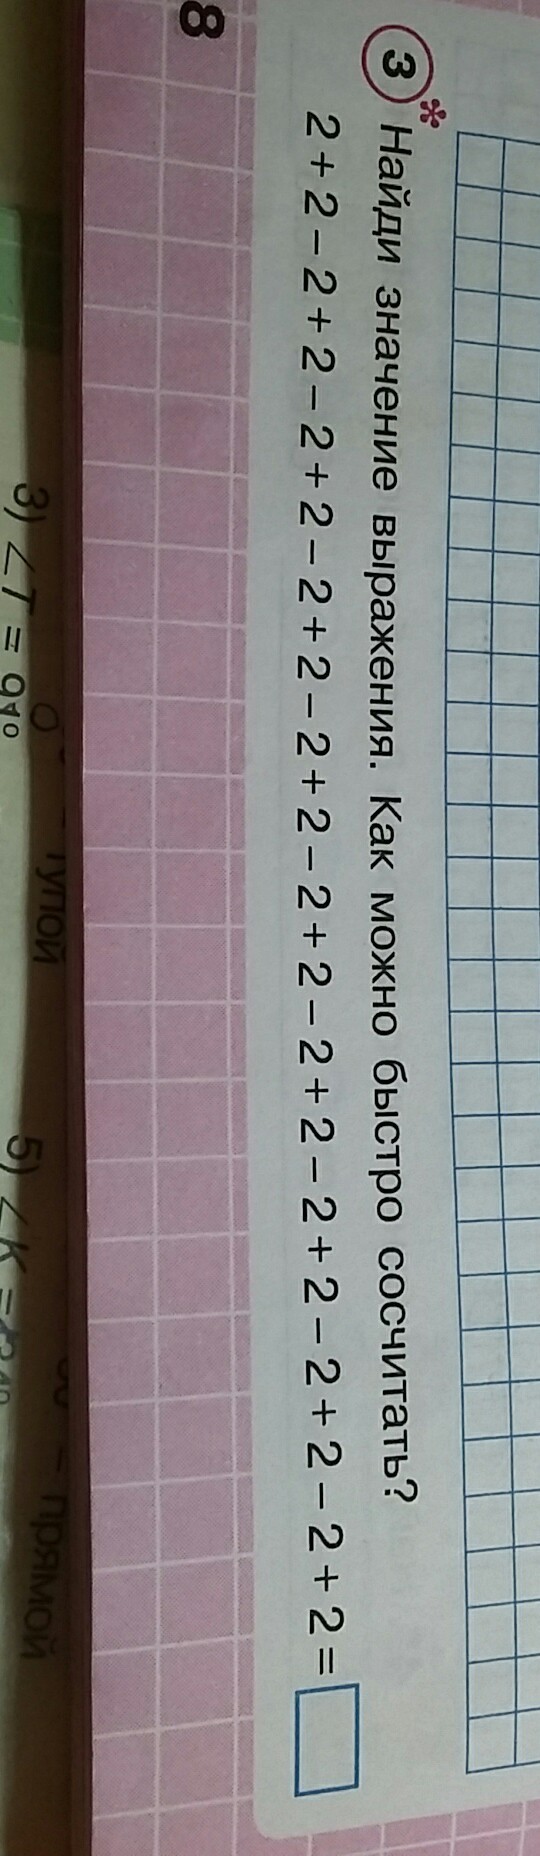 3* Найди значение выражения. Как можно быстро сосчитать?
2 + 2 − 2 + 2 − 2 + 2 − 2 + 2 − 2 + 2 − 2 + 2 − 2 + 2 − 2 + 2 − 2 + 2 − 2 + 2 =
8
− прямой
3) ∠T = 91°
5) ∠K =